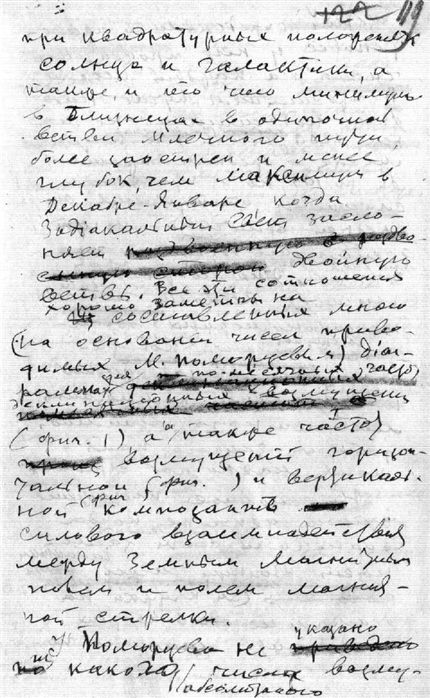 119
при квадратурных положениях
солнца и галактики, а
также и его что минимум
в Близнецах в одиночной
ветви млечного пути,
более заострен и менее
глубок, чем максимум в
Декабре-Январе когда
Зодіакальный Свет засло-
няет двойную
ветвь. Все эти соотношения
хорошо заметны на
составленных мною
(на основании чисел приво-
димых М. Поморцевым) діаг-
раммах для помесячных частот
возмущений
(фиг. 1) а также частоты
возмущений горизон-
тальной (фиг. ) и вертикаль-
ной (фиг. ) компонанты
силового взаимнодействия
между Земным магнитным
полем и полем магнит-
ной стрелки.
У Поморцева не указано
какого числа возму-
абсолютного